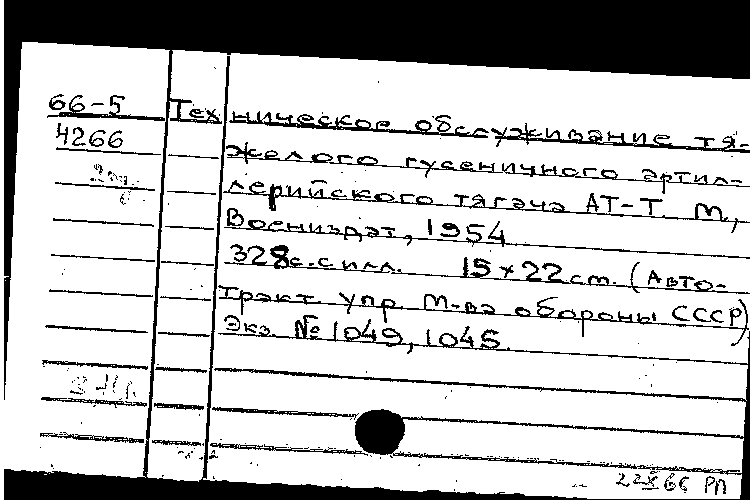 66-5 Техническое обслуживание тя-
4266 желого гусеничного артил-
лерийского тягача АТ-Т. М.,
Воениздат, 1954
328с. с илл. 15×22 см. (Авто-
тракт. упр. М-ва обороны СССР)
Экз. № 1049, 1045.
22 X 66 РП